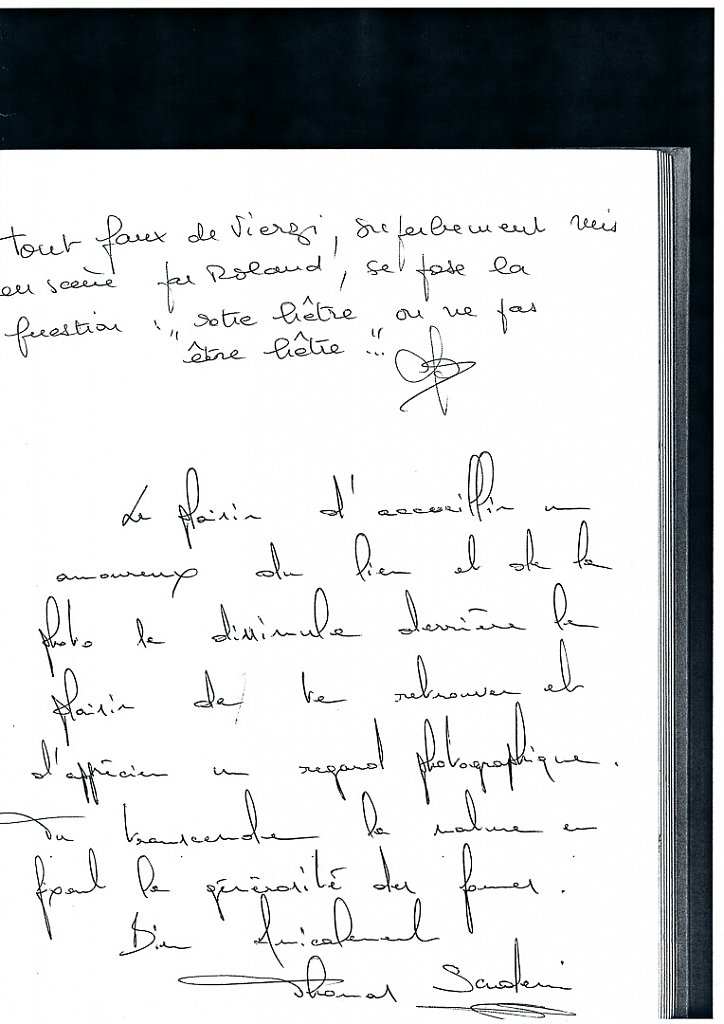 tout faux de Vierzi, superbement mis
en scène par Roland, se pose la
question : " votre hêtre ou ne pas
être hêtre "...
Le plaisir d'accueillir un
amoureux du lieu et de la
photo le dissimule derrière le
plaisir de te retrouver et
d'apprécier un regard photographique.
Tu transcende la nature en
fixant la générosité des formes.
Bien Amicalement
Thomas